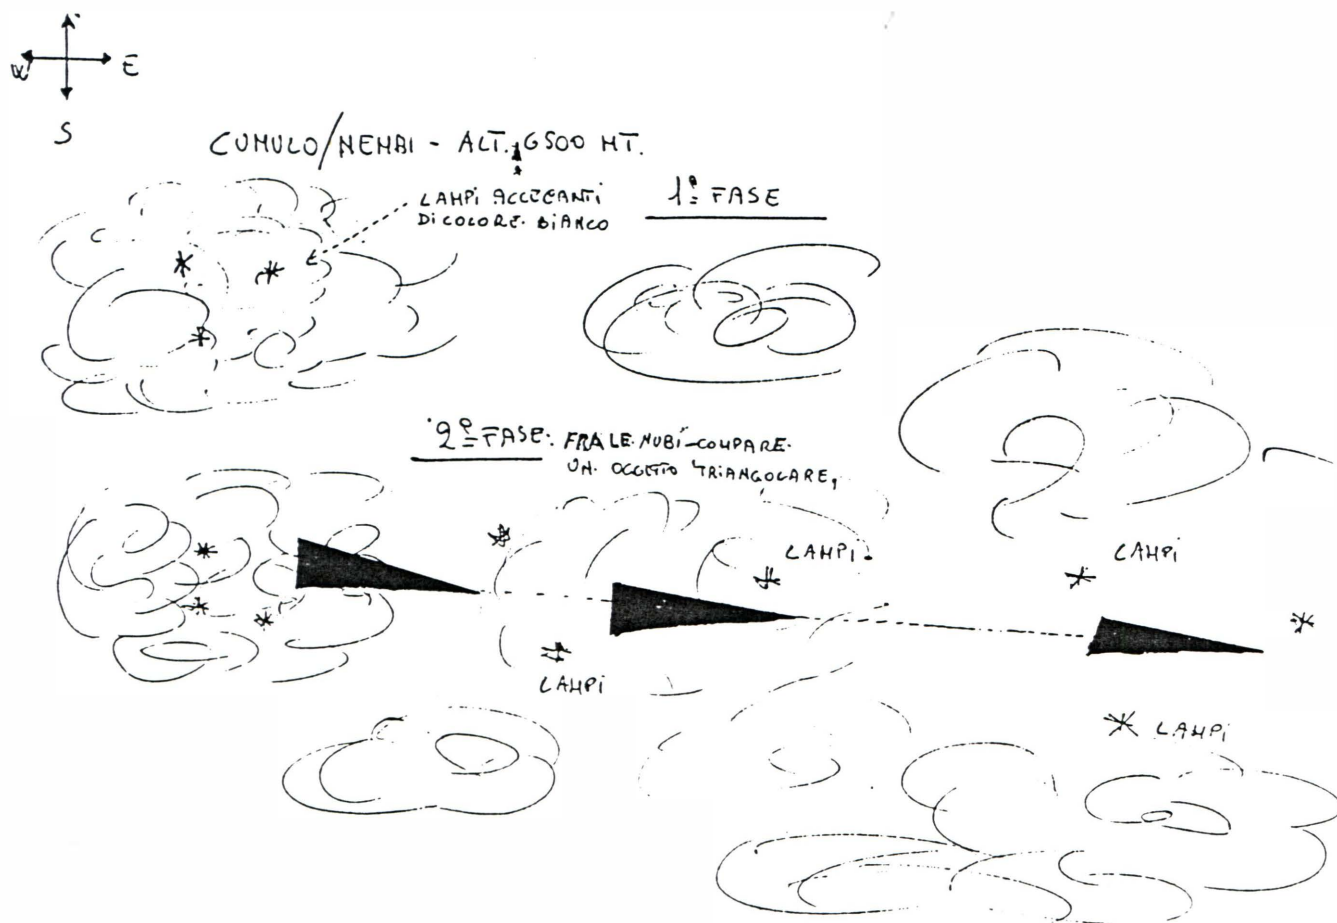 W E
S
CUMULO/NEMBI - ALT. 6500 MT.
LAMPI ACCECANTI
DI COLORE BIANCO
1ª FASE
2ª FASE: FRA LE NUBI COMPARE
UN OGGETTO TRIANGOLARE,
LAMPI
LAMPI
LAMPI
LAMPI